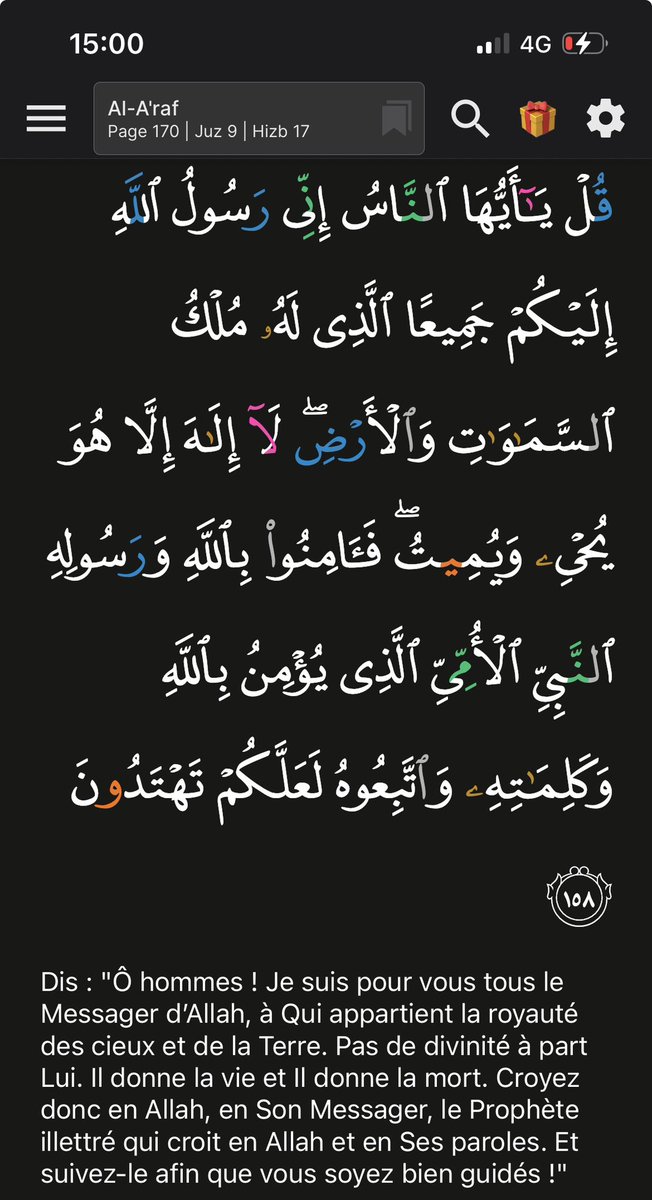 15:00
4G
Al-A'raf
Page 170 | Juz 9 | Hizb 17
قُلْ يَـٰٓأَيُّهَا ٱلنَّاسُ إِنِّى رَسُولُ ٱللَّهِ
إِلَيْكُمْ جَمِيعًا ٱلَّذِى لَهُۥ مُلْكُ
ٱلسَّمَـٰوَٰتِ وَٱلْأَرْضِ ۖ لَآ إِلَـٰهَ إِلَّا هُوَ
يُحْىِۦ وَيُمِيتُ ۖ فَـَٔامِنُوا۟ بِٱللَّهِ وَرَسُولِهِ
ٱلنَّبِىِّ ٱلْأُمِّىِّ ٱلَّذِى يُؤْمِنُ بِٱللَّهِ
وَكَلِمَـٰتِهِۦ وَٱتَّبِعُوهُ لَعَلَّكُمْ تَهْتَدُونَ
١٥٨
Dis : "Ô hommes ! Je suis pour vous tous le
Messager d’Allah, à Qui appartient la royauté
des cieux et de la Terre. Pas de divinité à part
Lui. Il donne la vie et Il donne la mort. Croyez
donc en Allah, en Son Messager, le Prophète
illettré qui croit en Allah et en Ses paroles. Et
suivez-le afin que vous soyez bien guidés !"